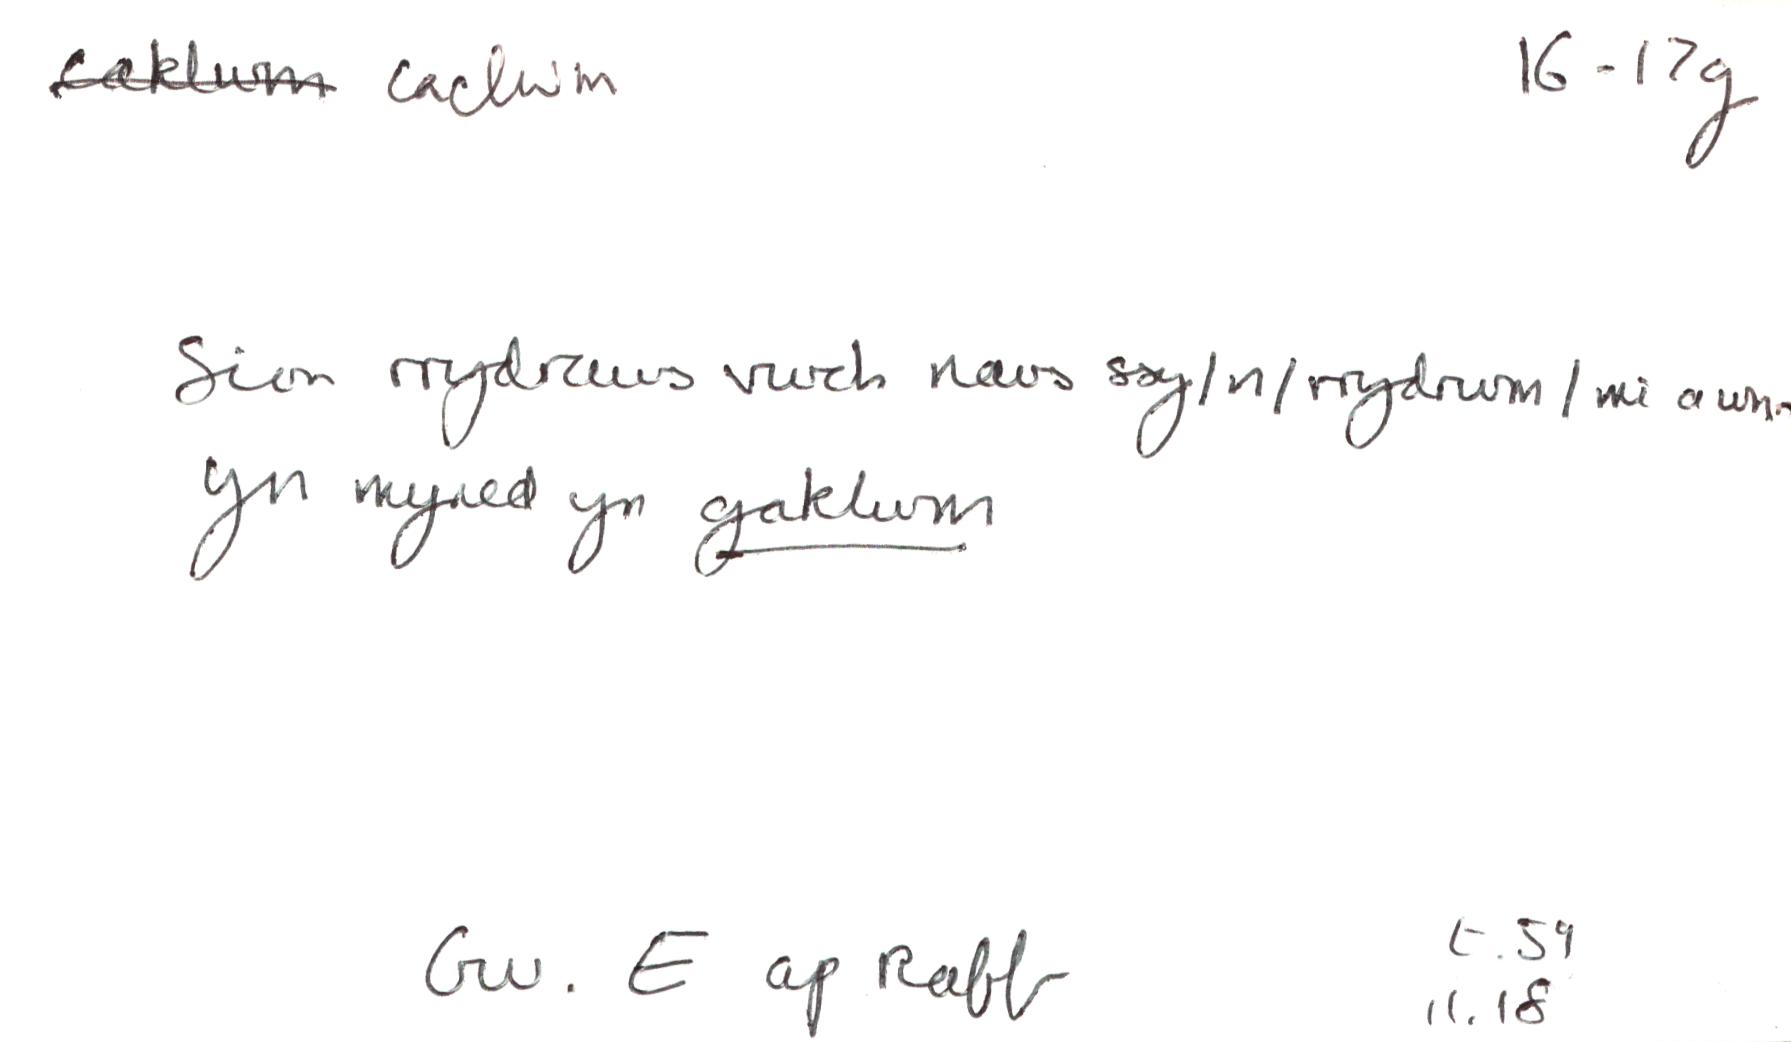 ~~caklwm~~ caclwm 16-17g
Sion rrydrws vwch naws ssy/n/rrydrwm/mi a wn
yn myned yn gaklwm
Gw. E ap Raff t.59
ll.18